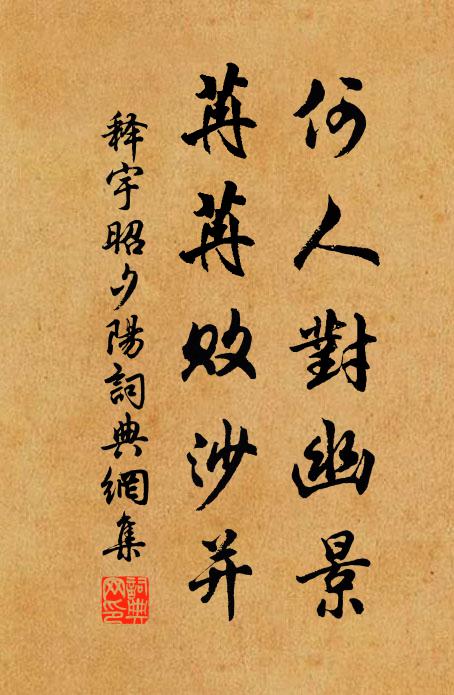 何人對幽景
苒苒败沙并
释宇昭夕陽詞典網集
詞典网印